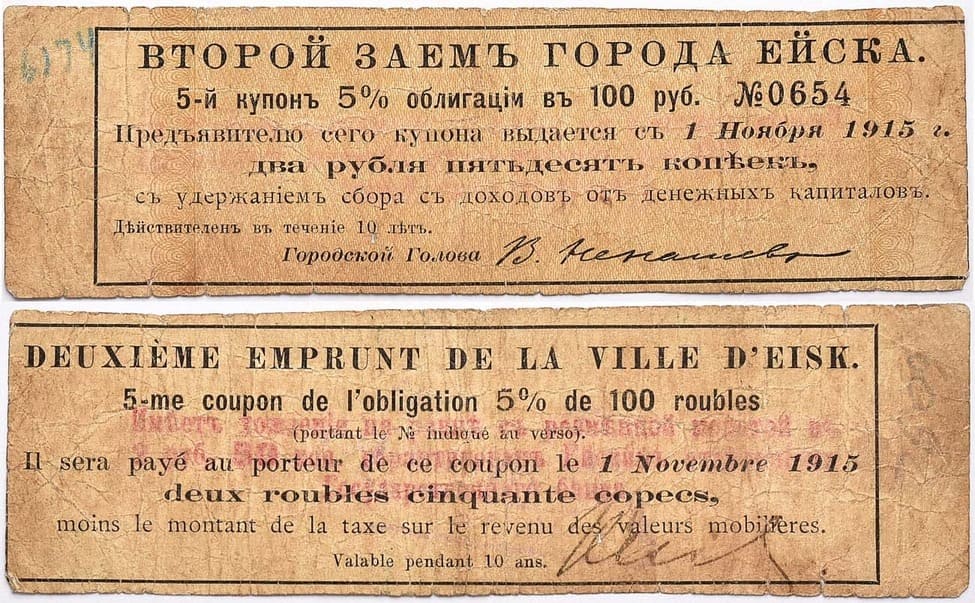 6174
ВТОРОЙ ЗАЕМЪ ГОРОДА ЕЙСКА.
5-й купонъ 5% облигаціи въ 100 руб. №0654
Предъявителю сего купона выдается съ 1 Ноября 1915 г.
два рубля пятьдесятъ копѣекъ,
съ удержаніемъ сбора съ доходовъ отъ денежныхъ капиталовъ.
Дѣйствителенъ въ теченіе 10 лѣтъ.
Городской Голова В. Ненашевъ
DEUXIÈME EMPRUNT DE LA VILLE D'EISK.
5-me coupon de l'obligation 5% de 100 roubles
(portant le № indiqué au verso).
Il sera payé au porteur de ce coupon le 1 Novembre 1915
deux roubles cinquante copecs,
moins le montant de la taxe sur le revenu des valeurs mobilières.
Valable pendant 10 ans.